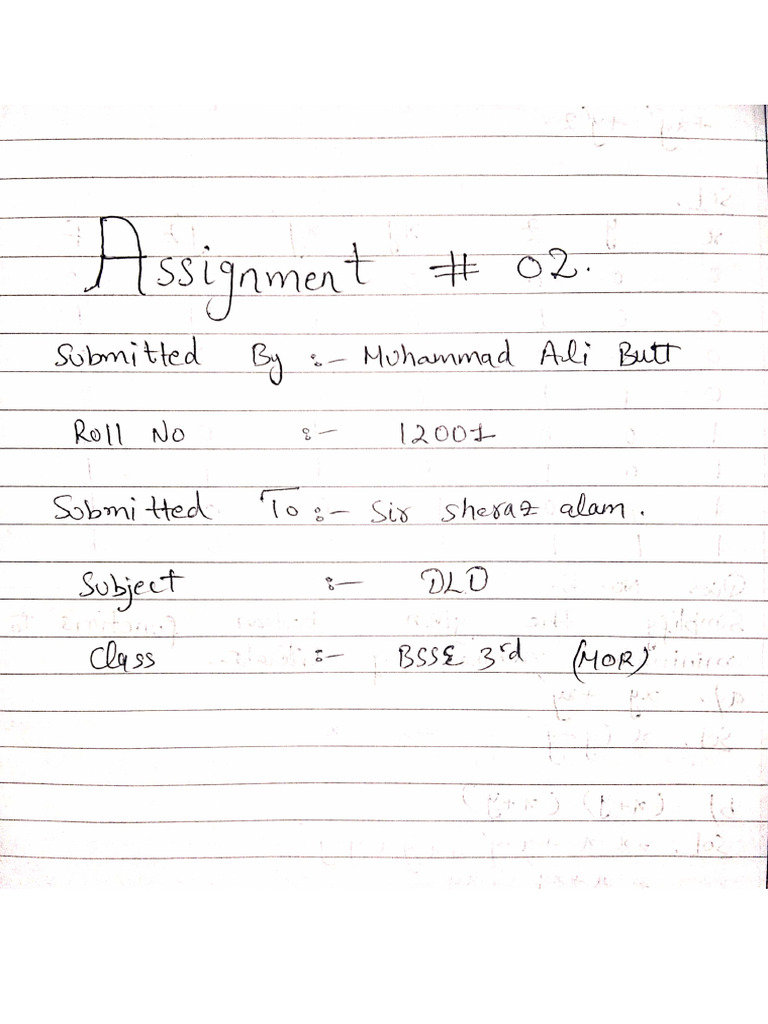 Assignment # 02.
Submitted By :- Muhammad Ali Butt
Roll No :- 12001
Submitted To :- Sir Sheraz alam.
Subject :- DLD
Class :- BSSE 3rd (MOR)